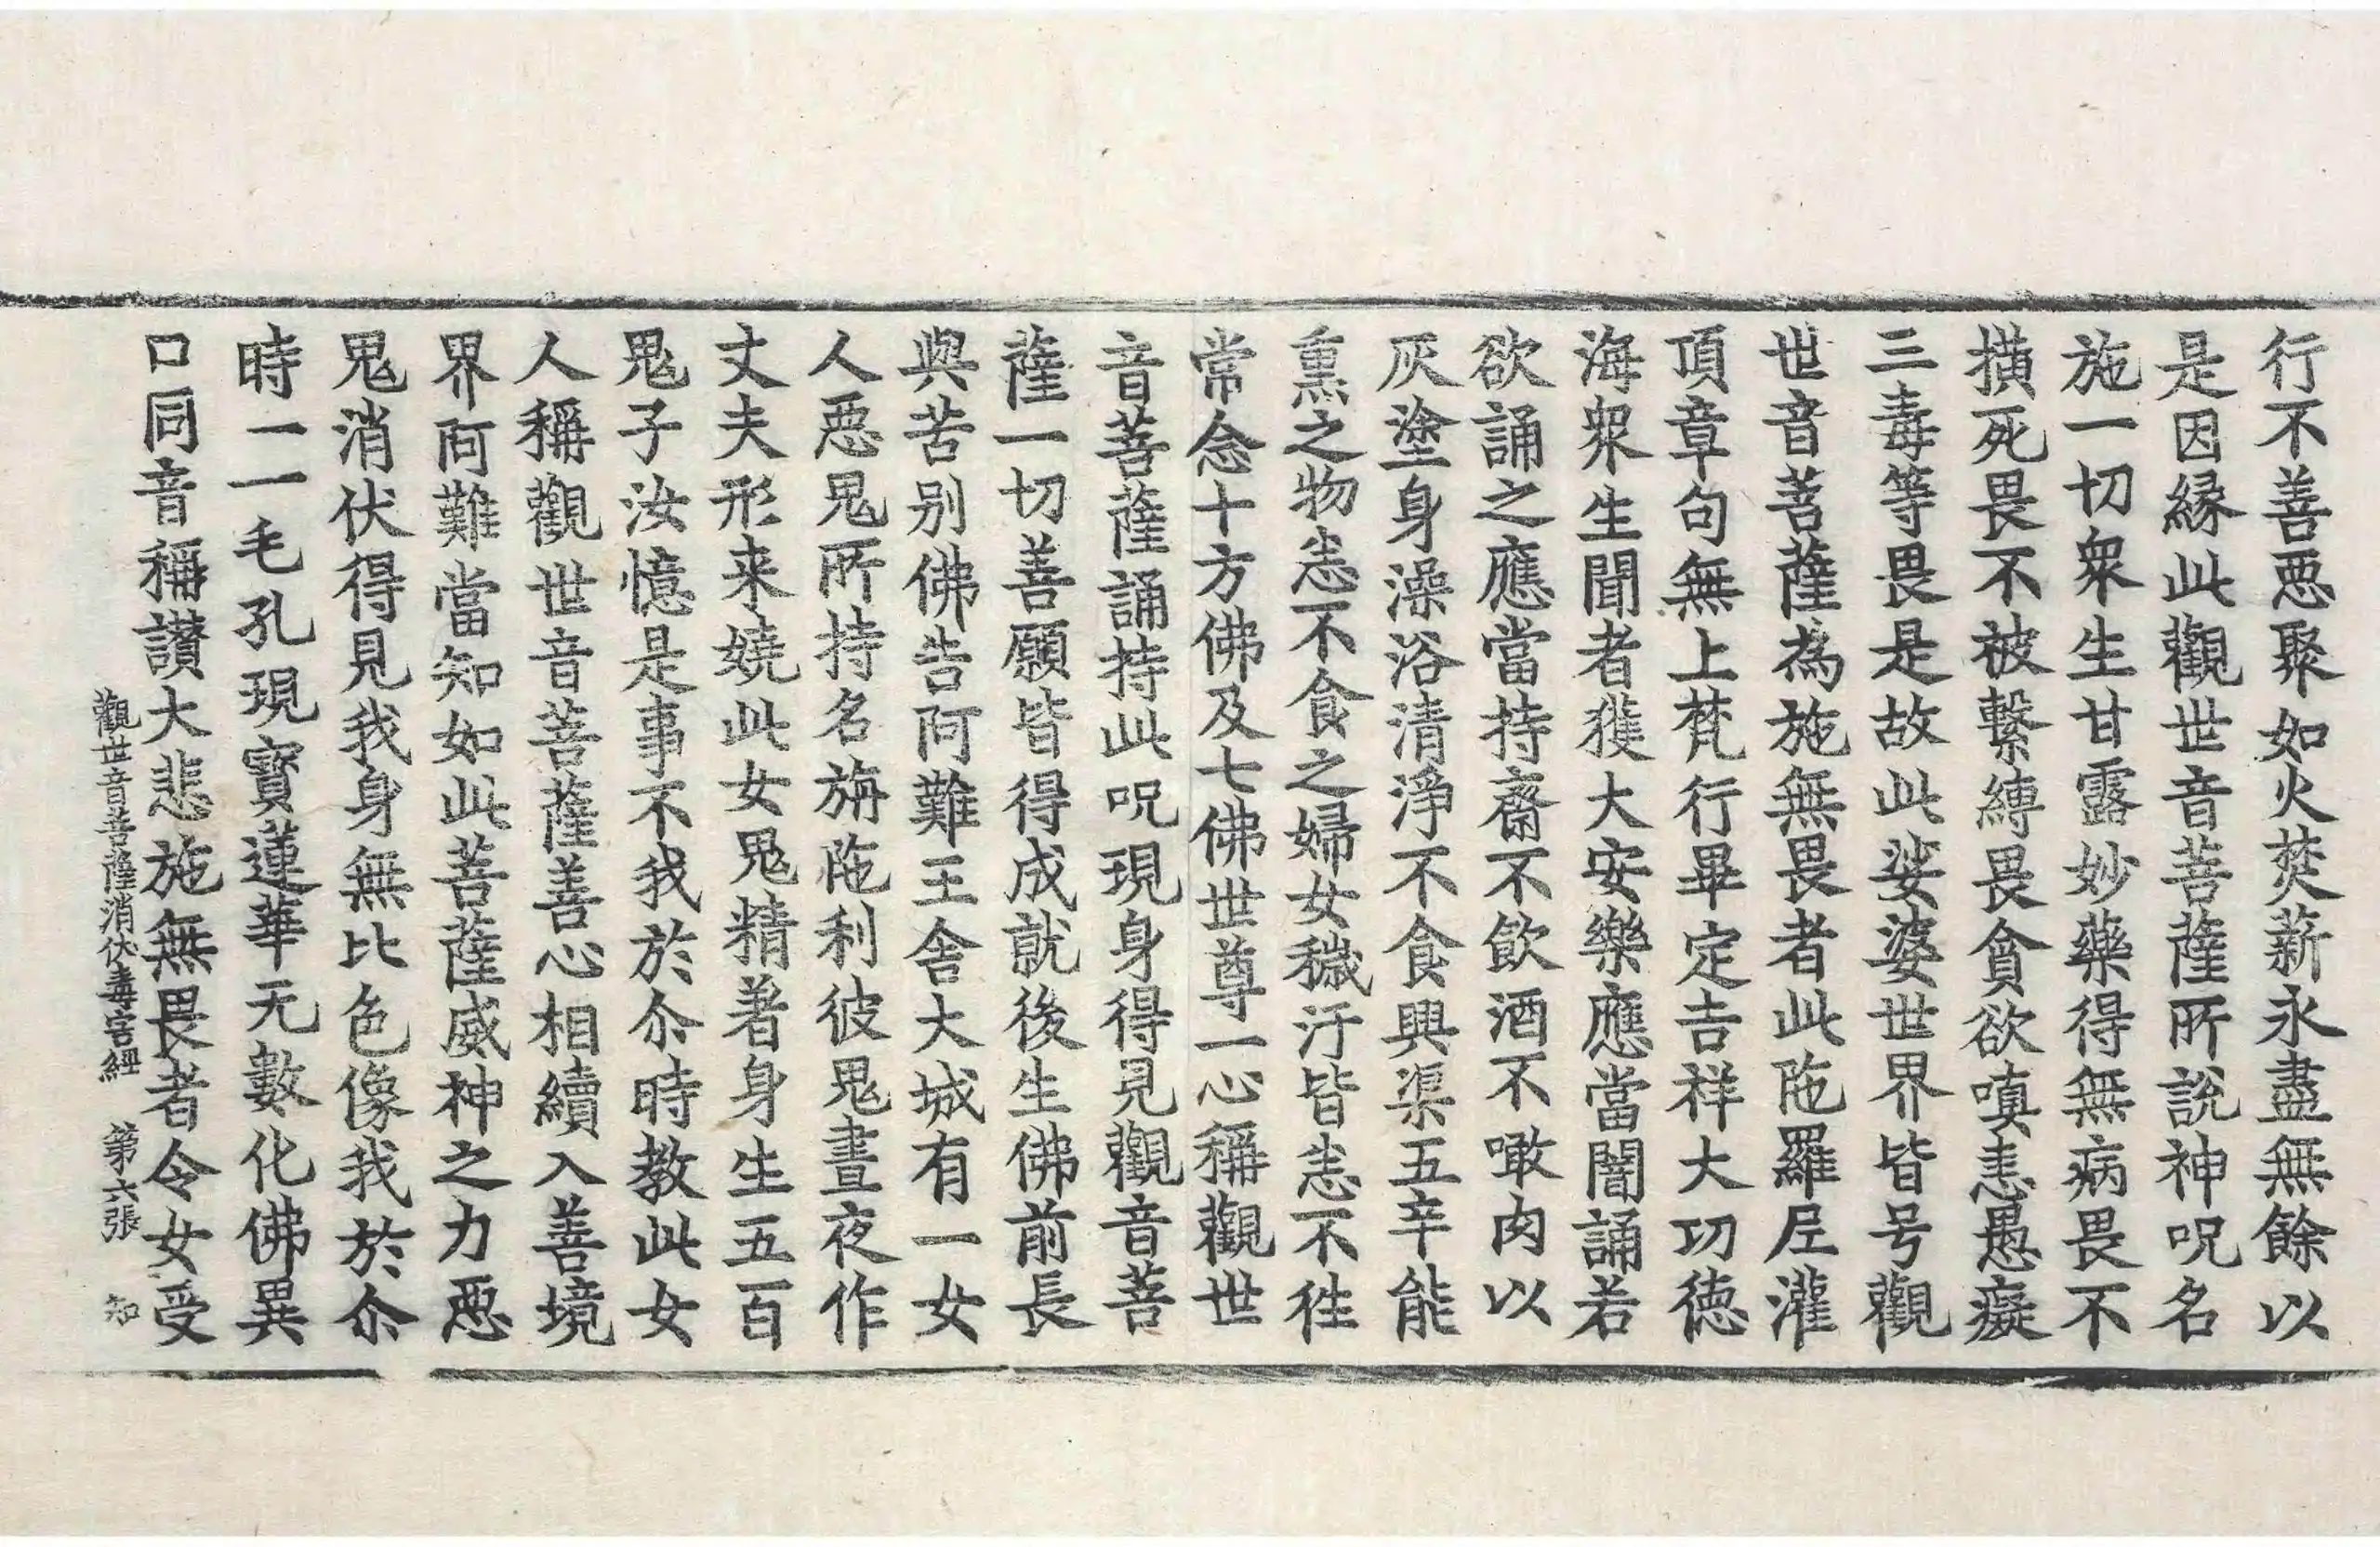 行不善惡聚如火焚薪永盡無餘以
是因縁此觀世音菩薩所說神呪名
施一切衆生甘露妙藥得無病畏不
撗死畏不被繫縛畏貪欲嗔恚愚癡
三毒等畏是故此娑婆世界皆号觀
世音菩薩為施無畏者此陁羅尼灌
頂章句無上梵行畢定吉祥大功德
海衆生聞者獲大安樂應當闇誦若
欲誦之應當持齋不飲酒不噉肉以
灰塗身澡浴清淨不食興渠五辛能
熏之物悉不食之婦女穢汙皆悉不徃
常念十方佛及七佛世尊一心稱觀世
音菩薩誦持此呪現身得見觀音菩
薩一切善願皆得成就後生佛前長
與苦别佛告阿難王舍大城有一女
人惡鬼所持名旃陁利彼鬼晝夜作
丈夫形来嬈此女鬼精著身生五百
鬼子汝憶是事不我於尒時教此女
人稱觀世音菩薩善心相續入善境
界阿難當知如此菩薩威神之力惡
鬼消伏得見我身無比色像我於尒
時一一毛孔現寶蓮華无數化佛異
口同音稱讃大悲施無畏者令女受
觀世音菩薩消伏毒害經　第六張　知